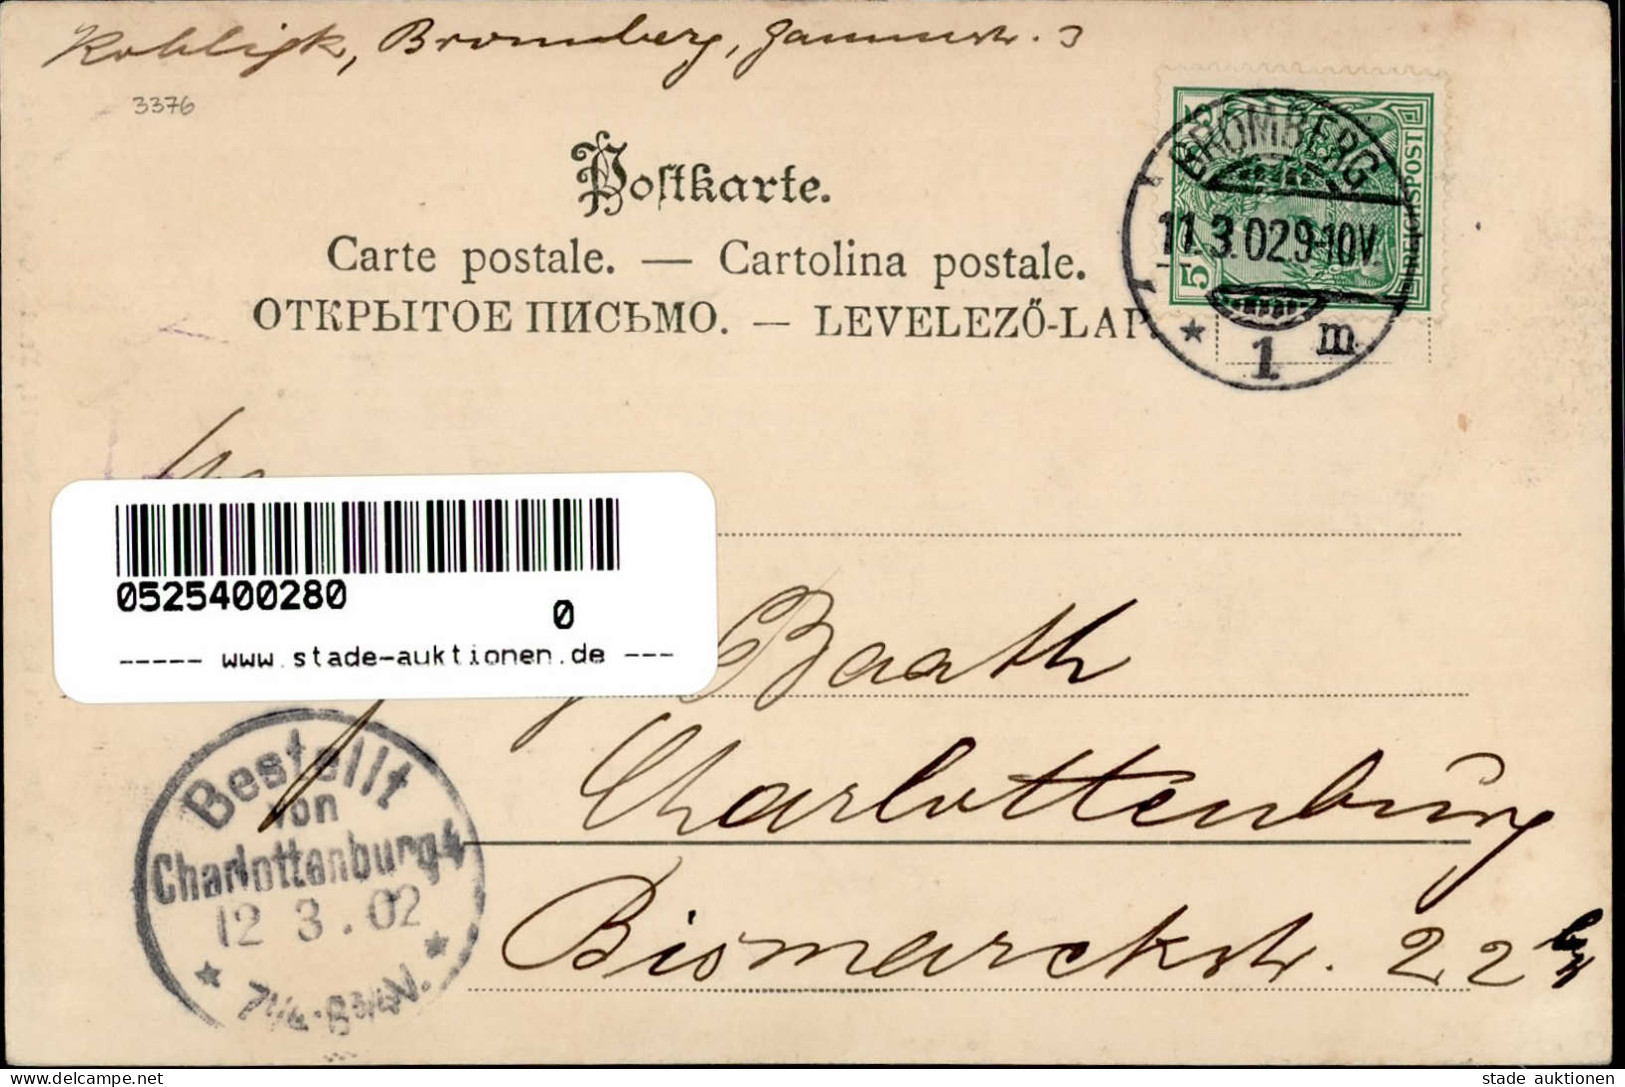 Bromberg, 3
3376
Postkarte.
Carte postale. — Cartolina postale.
ОТКРЫТОЕ ПИСЬМО. — LEVELEZŐ-LAP.
5 5
REICHSPOST
5
BROMBERG
11.3.02.9-10V.
* 1 m
0525400280
0
----- www.stade-auktionen.de ---
Baath
Charlottenburg
Bismarckstr. 22
Bestellt
von
Charlottenburg 4
12 3.02
* 7¼-8¾V. *
delcampe.net
stade auktionen